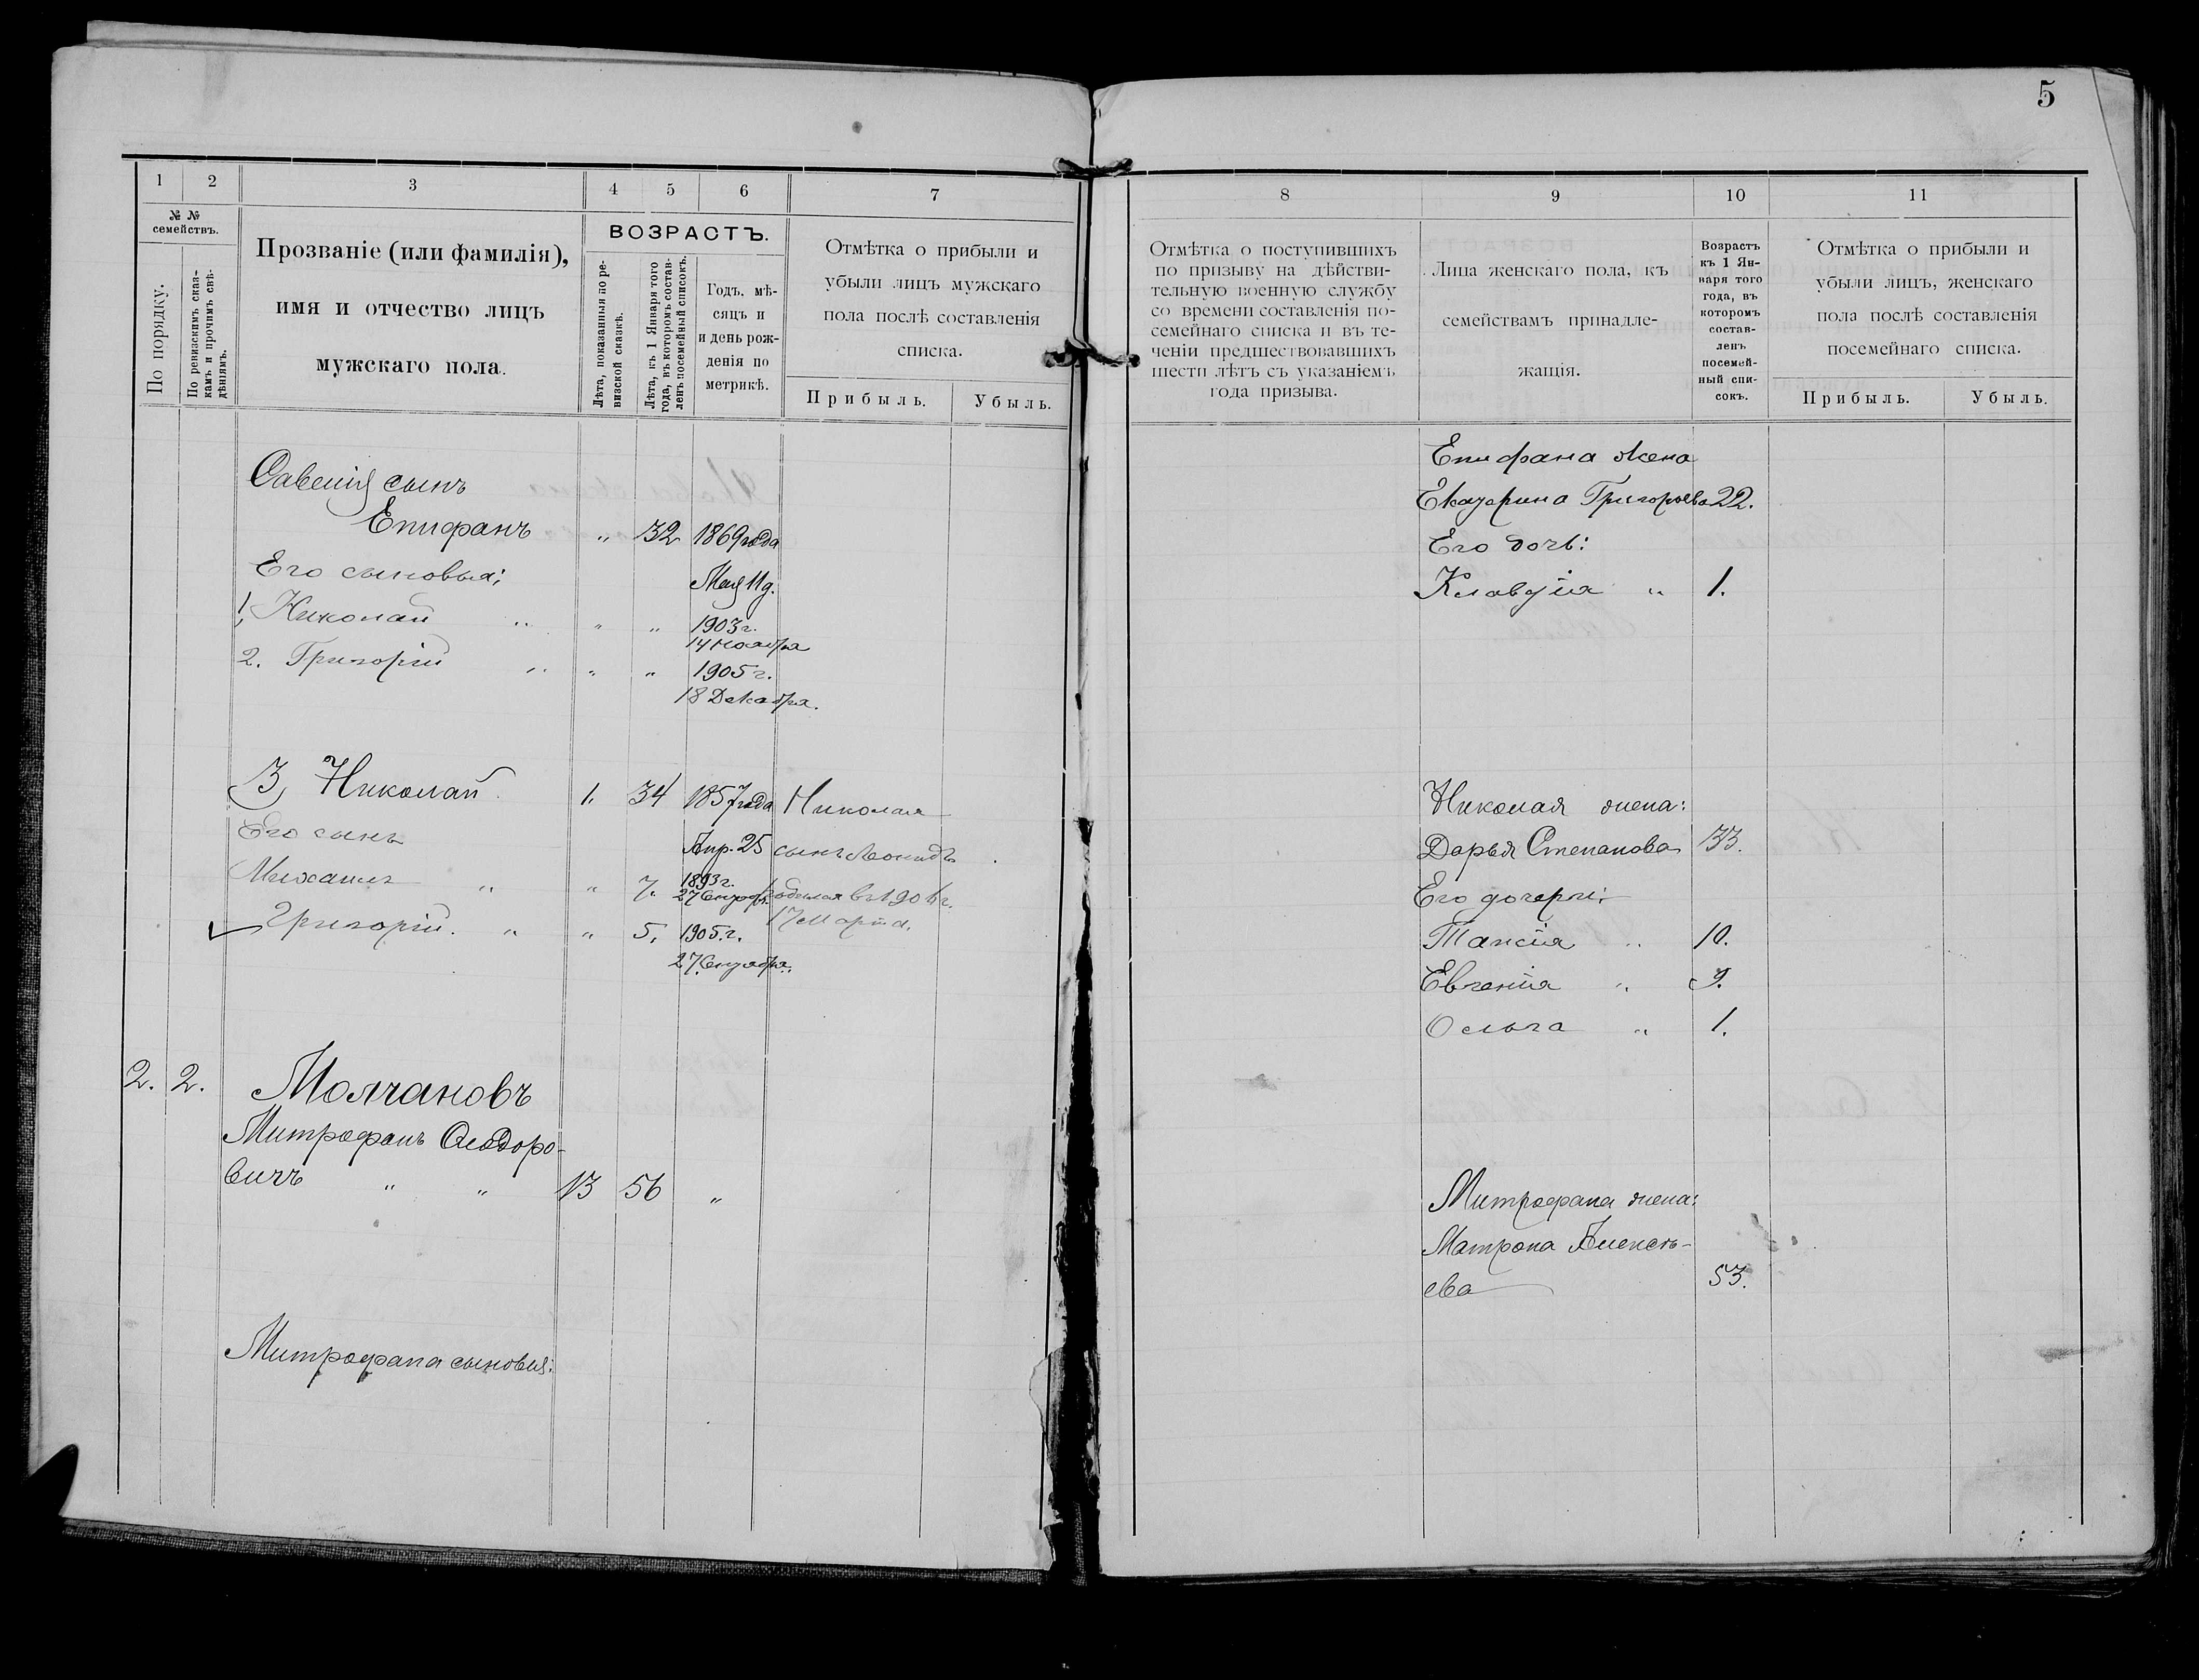 5
1 2 3 4 5 6 7
№ № семействъ.
По порядку.
По ревизскимъ сказ-
камъ и прочимъ свѣ-
дѣніямъ.
Прозваніе (или фамилія),
имя и отчество лицъ
мужскаго пола.
ВОЗРАСТЪ.
Лѣта, показанныя по ре-
визской сказкѣ.
Лѣта, къ 1 Января того
года, въ которомъ состав-
ленъ посемейный списокъ.
Годъ, мѣ-
сяцъ и
и день рож-
денія по
метрикѣ.
Отмѣтка о прибыли и
убыли лицъ мужскаго
пола послѣ составленія
списка.
Прибыль. Убыль.
Савелія сынъ
Епифанъ " 32 1869 года
Его сыновья: Мая 11 д.
1, Николай " " " 1903 г.
14 Ноября
2. Григорій " " " 1905 г.
18 Декабря.
3, Николай 1. 34 1857 года Николая
Его сынъ Апр. 25 сынъ Леонидъ
Михаилъ " " 7. 1893 г.
27 Сентября родился въ 1906 г.
17 Марта.
Григорій. " " 5. 1905. г.
27 Сентября.
2. 2. Молчановъ
Митрофанъ Ѳеодоро-
вичъ " " 13 56 "
Митрофана сыновья:
8 9 10 11
Отмѣтка о поступившихъ
по призыву на дѣйстви-
тельную военную службу
со времени составленія по-
семейнаго списка и въ те-
ченіи предшествовавшихъ
шести лѣтъ съ указаніемъ
года призыва.
Лица женскаго пола, къ
семействамъ принадле-
жащія.
Возрастъ
къ 1 Ян-
варя того
года, въ
которомъ
состав-
ленъ
посемей-
ный спи-
сокъ.
Отмѣтка о прибыли и
убыли лицъ, женскаго
пола послѣ составленія
посемейнаго списка.
Прибыль. Убыль.
Епифана жена
Екатерина Григорьева 22.
Его дочь:
Клавдія " 1.
Николая жена:
Дарья Степанова 33.
Его дочери:
Таисія " 10.
Евгенія " 9.
Ольга " 1.
Митрофана жена:
Матрона Алексѣ-
ева 53.